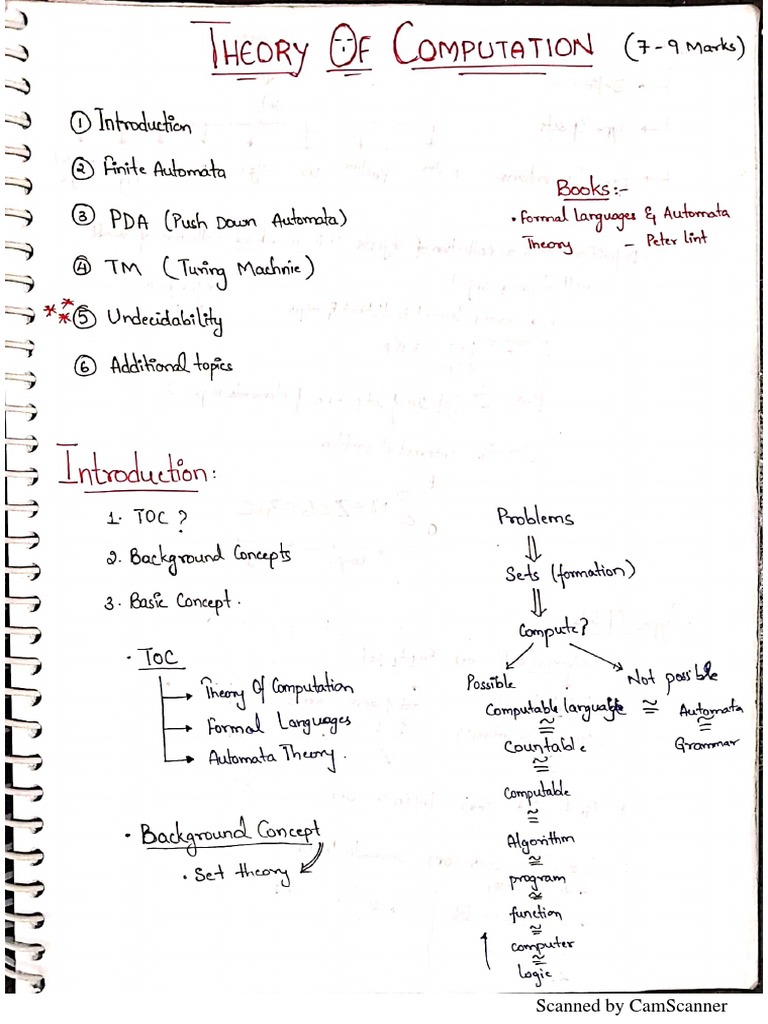 THEORY OF COMPUTATION (7-9 Marks)
① Introduction
② Finite Automata
③ PDA (Push Down Automata)
④ TM (Turing Machnie)
*** ⑤ Undecidability
⑥ Additional topics
Books:-
• Formal Languages & Automata
Theory - Peter Lint
Introduction:
1. TOC ?
2. Background Concepts
3. Basic Concept.
• TOC
→ Theory Of Computation
→ Formal Languages
→ Automata Theory.
• Background Concept
• Set theory
Problems
⇓
Sets (formation)
⇓
Compute?
Possible Not possible
Computable language ≅ Automata
≅ ≅
Countable Grammar
≅
Computable
≅
Algorithm
≅
program
≅
function
≅
computer
≅
logic
Scanned by CamScanner